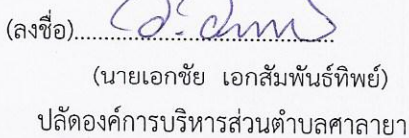 (ลงชื่อ)
(นายเอกชัย เอกสัมพันธ์ทิพย์)
ปลัดองค์การบริหารส่วนตำบลศาลายา